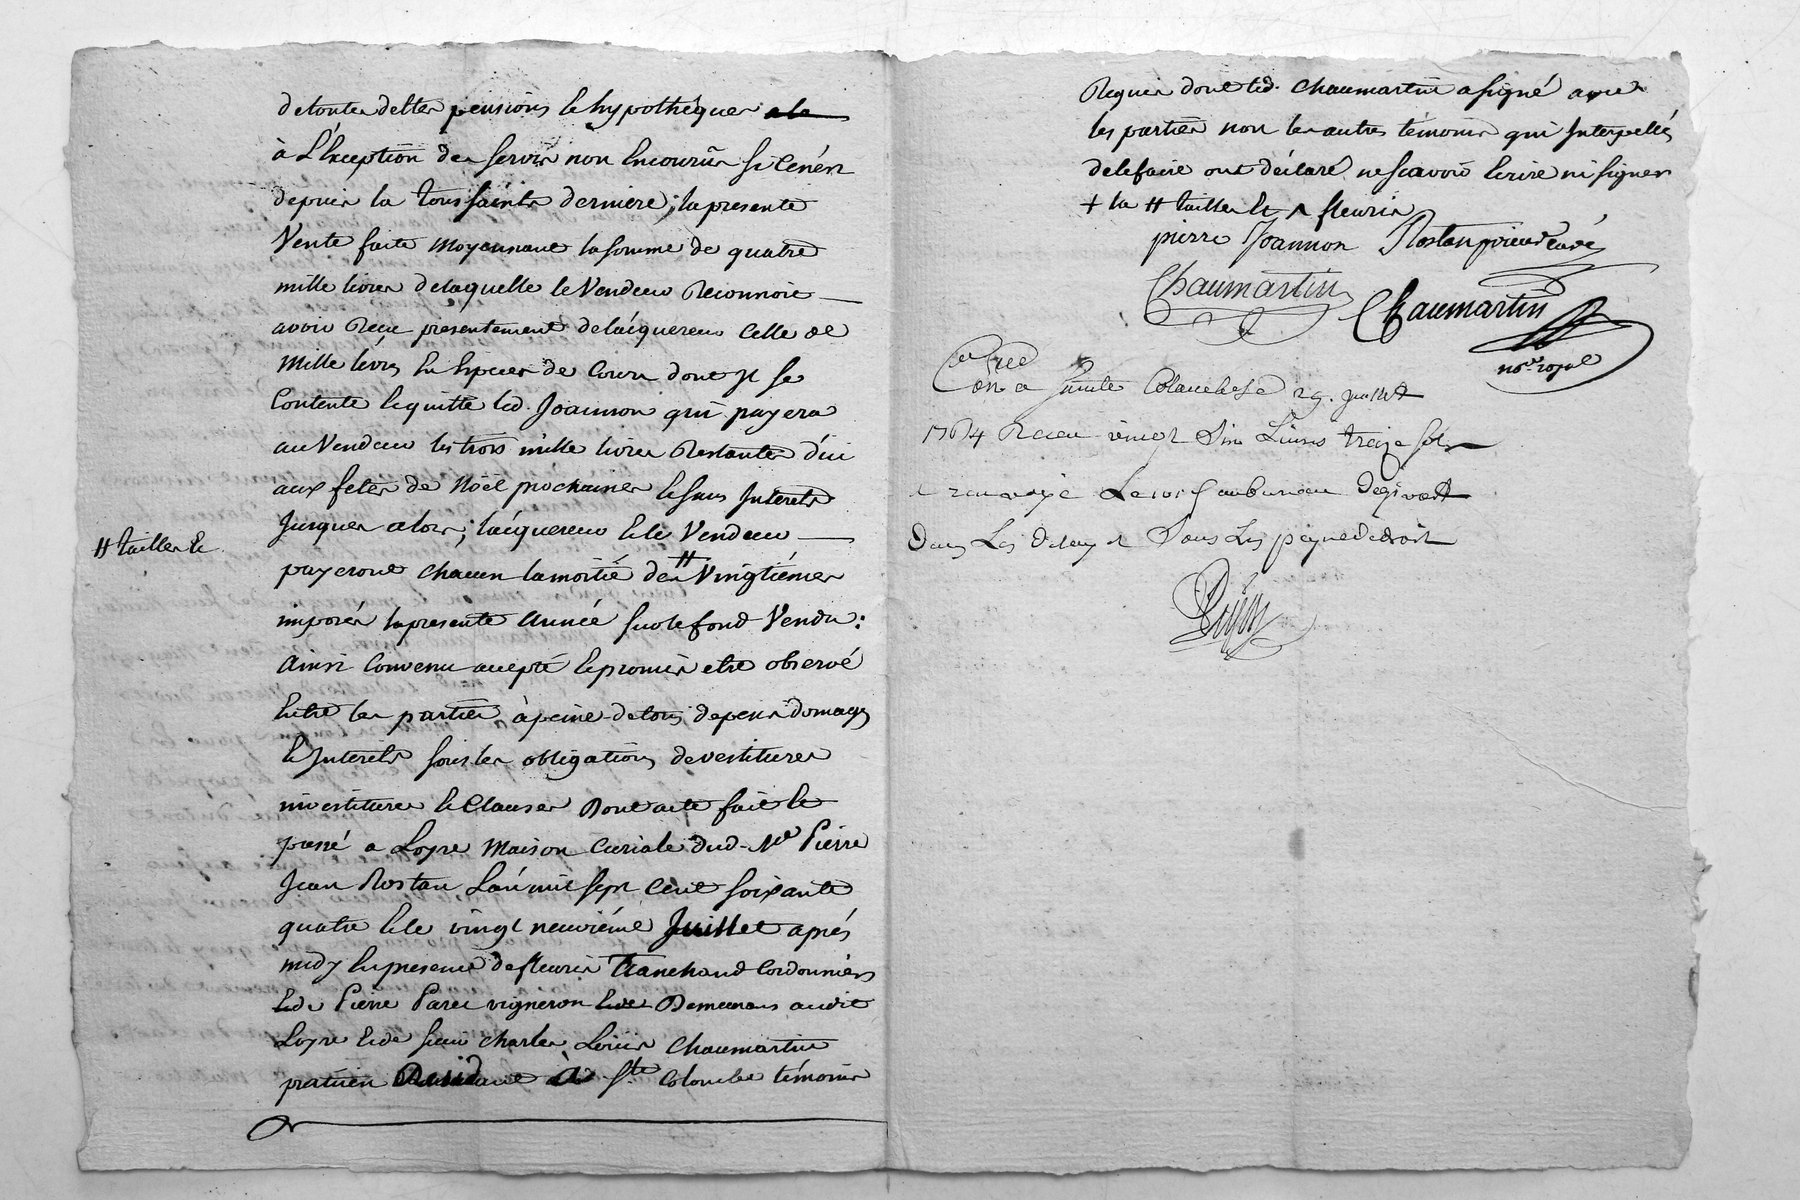 detoutes dettes pensions & hypothéques
à L'Exception des servis non Encourus si cen'est
depuis la toussaints derniere; la presente
Vente faite moyennant la somme de quatre
mille livres delaquelle le Vendeur Reconnoit
avoir Receu presentement delacquereur Celle de
mille livres En Especes de Cours dont Il se
Contente & quitte led. Joannon qui payera
au Vendeur les trois mille livres Restantes d'ici
aux fetes de Noël prochaines & sans Interets
Jusques alors; lacquereur & le Vendeur
# tailles &
payeront chacun la moitié des # Vingtiémes
imposés la presente année sur le fond Vendu:
ainsi Convenu accepté & promis etre observé
Entre les parties à peine detous depens domages
& Interets sous les obligations devestitures
investitures & Clauses Dont acte fait &
passé a Loyre maison Curiale dud. Me Pierre
Jean Rostan L'an mil sept Cent soixante
quatre & le vingt neuviéme Juillet aprés
midy En presence de fleuris Tranchand Cordonnier
Pierre vigneron Demeurans audit
Loyre & de sieur Charles Loüis Chaumartin
praticien Residant à Ste Colombe témoins
Requis dont led. Chaumartin a signé avec
les parties non les autres témoins qui Interpellés
delefaire ont déclaré nesçavoir Ecrire ni signer
+ la # tailles & fleuris
pierre Joannon Rostan prieur curé
Chaumartin Chaumartin
nore royal
Coné a Sainte Colombe le 29. juillet
1764 Receu vingt six Livres treize sols
& renvoyé Le au bureau de givort
Dans Les delays & Sous Les peynes de droit